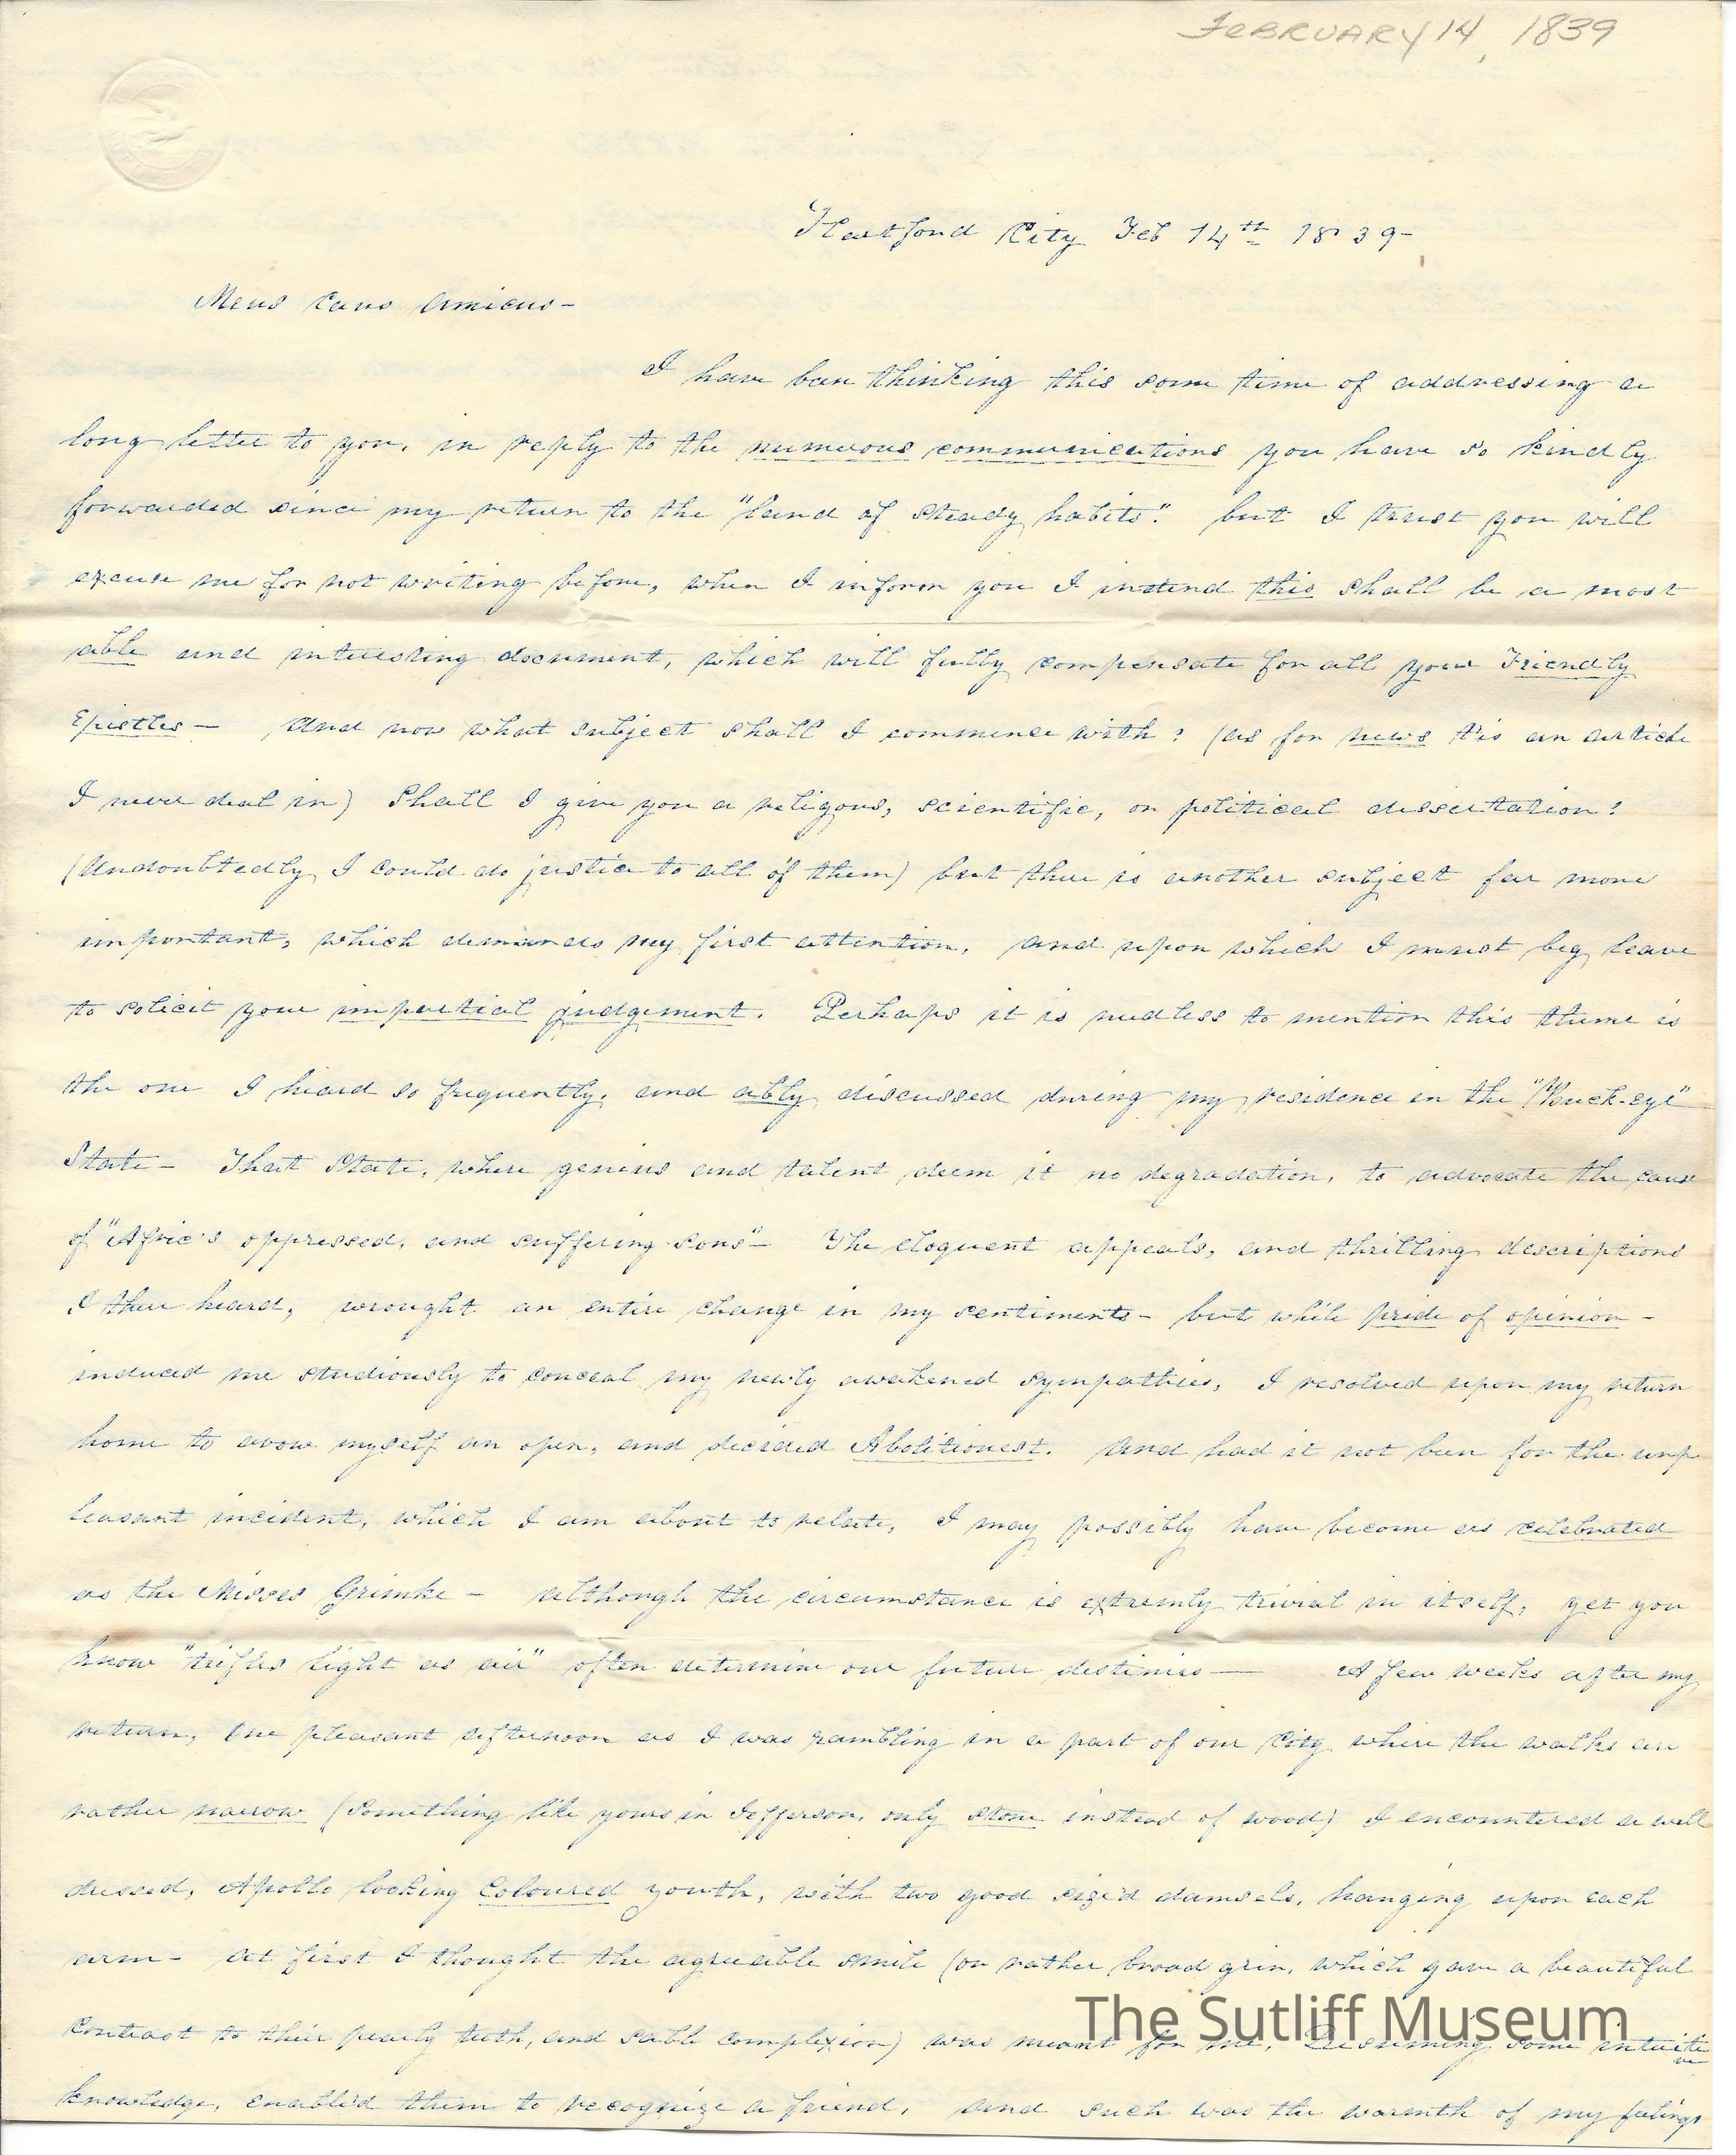 FEBRUARY 14, 1839
Hartford City Feb 14th 1839-
Meus Carus Amicus-
I have been thinking this some time of addressing a
long letter to you, in reply to the numerous communications you have so kindly
forwarded since my return to the "land of steady habits". but I trust you will
excuse me for not writing before, when I inform you I intend this shall be a most
able and interesting document, which will fully compensate for all your Friendly
Epistles- And now what subject shall I commence with? (as for news tis an article
I never deal in) Shall I give you a religous, scientific, or political dissertation?
(Undoubtedly I could do justice to all of them) but there is another subject far more
important, which demands my first attention, and upon which I must beg leave
to solicit your impartial judgement. Perhaps it is needless to mention this theme is
the one I heard so frequently, and ably discussed during my residence in the "Buck-eye"
State- That State, where genius and talent deem it no degradation, to advocate the cause
of "Afric's oppressed, and suffering sons"- The eloquent appeals, and thrilling descriptions
I there heard, wrought an entire change in my sentiments- but while pride of opinion-
induced me studiously to conceal my newly awakened sympathies, I resolved upon my return
home to avow myself an open, and decided Abolitionest. And had it not been for the unp
leasant incident, which I am about to relate, I may possibly have become as celebrated
as the Misses Grimke- although the circumstance is extremly trivial in itself, yet you
know "trifles light as air" often determine our future destinies- A few weeks after my
return, one pleasant afternoon as I was rambling in a part of our City where the walks are
rather narrow (Something like yours in Jefferson, only stone instead of wood) I encountered a well
dressed, Apollo looking Coloured youth, with two good sized damsels, hanging upon each
arm- at first I thought the agreeable smile (or rather broad grin, which gave a beautiful
contrast to their pearly teeth, and sable complexion) was meant for me, Presuming some intuiti
ve
knowledge, enabled them to recognize a friend, and such was the warmth of my feelings
The Sutliff Museum